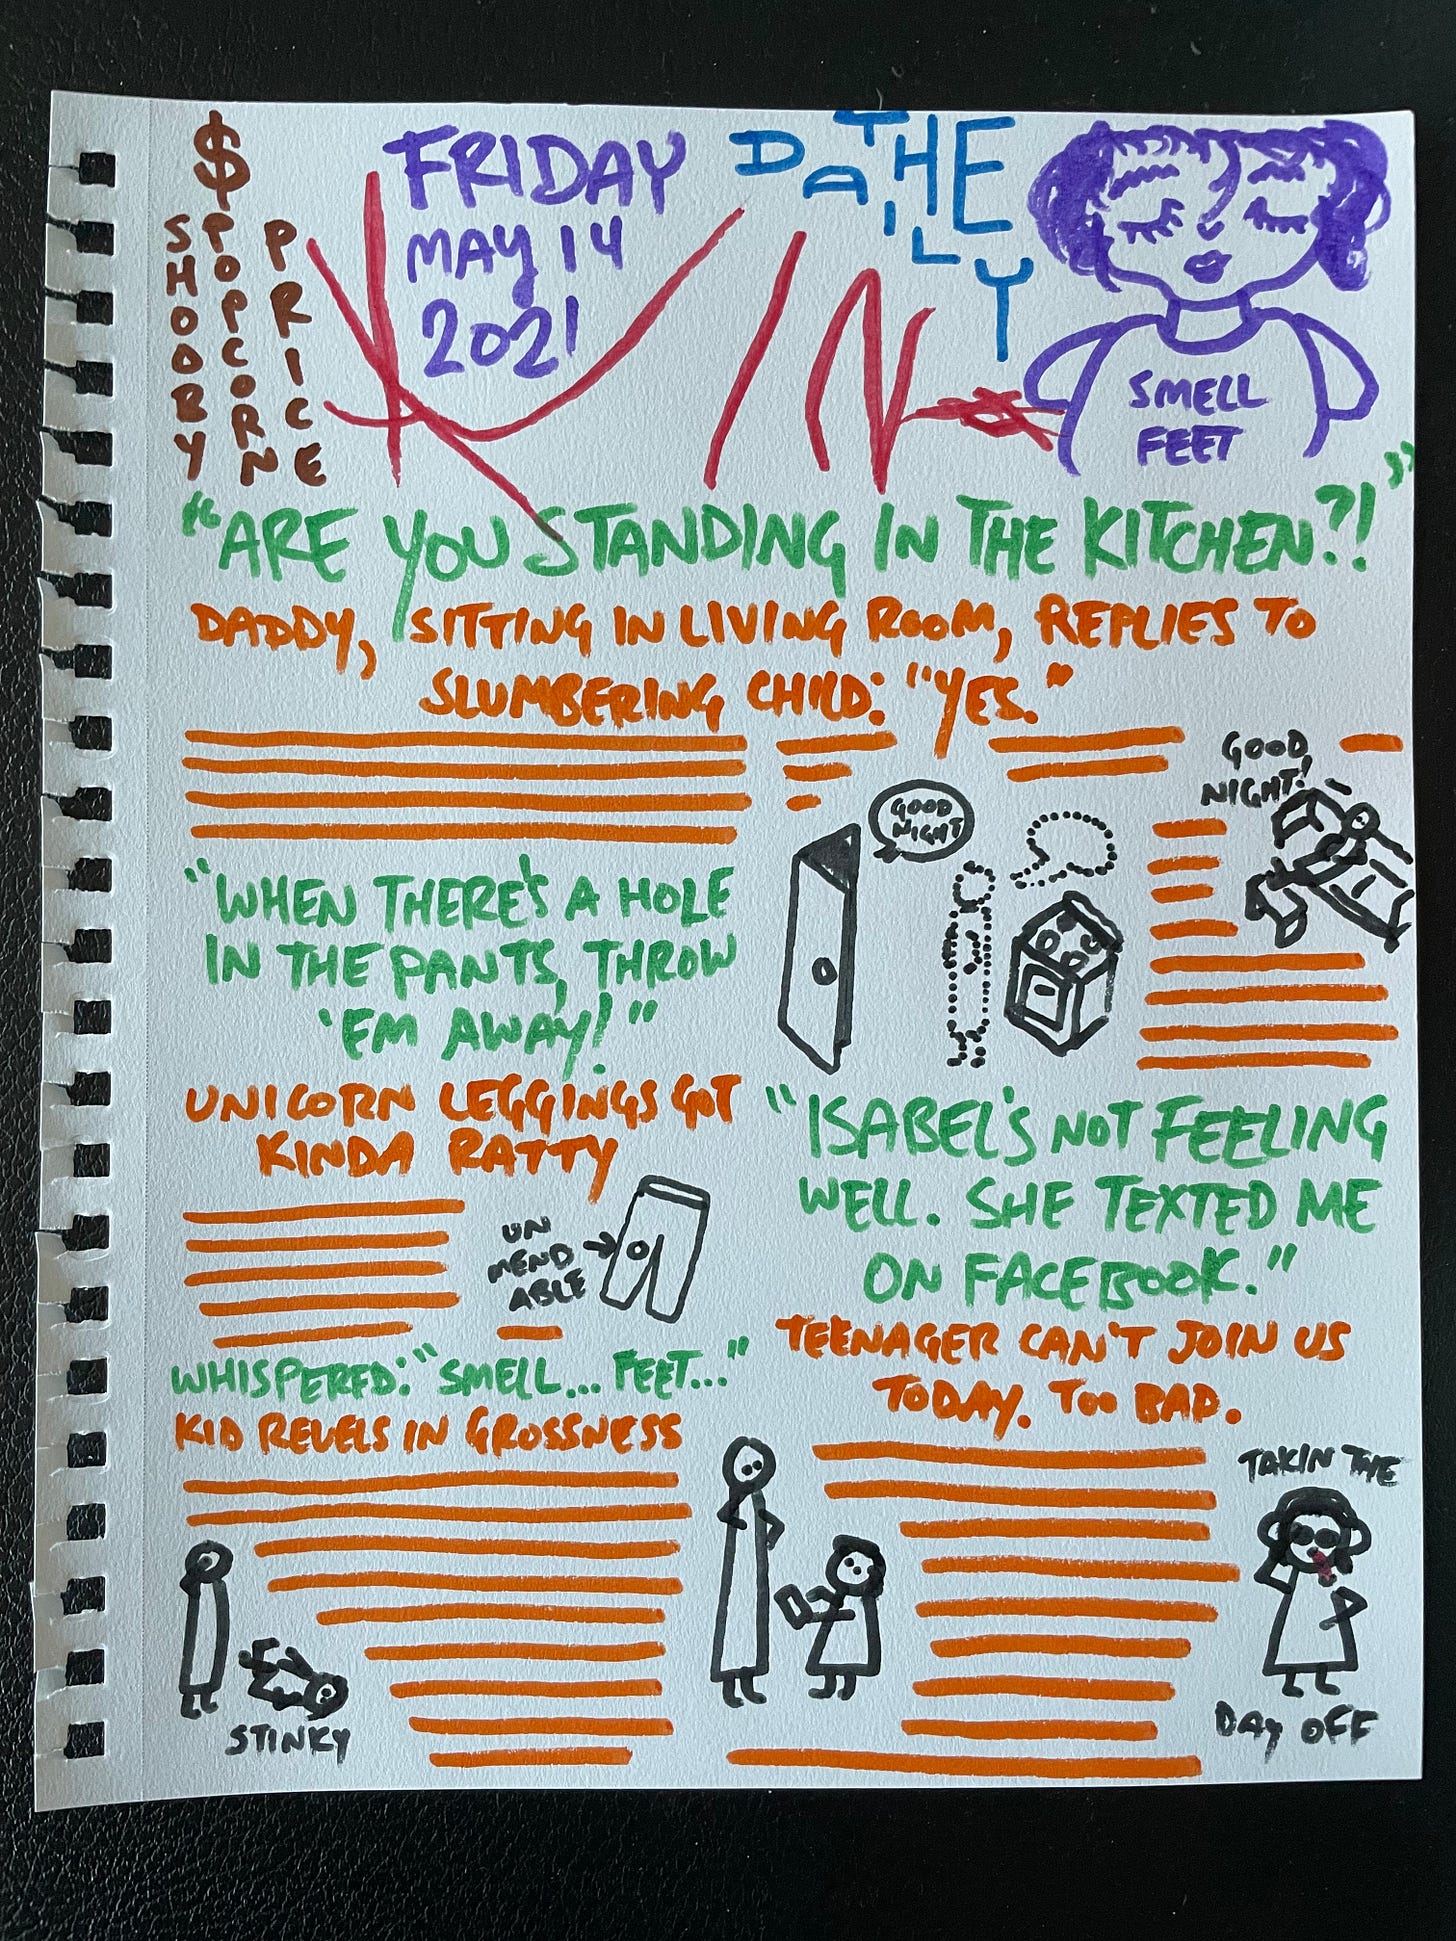 $
SHODDY
POPCORN
PRICE
FRIDAY
MAY 14
2021
THE
DAILY
KIN
SMELL
FEET
"ARE YOU STANDING IN THE KITCHEN?!"
DADDY, SITTING IN LIVING ROOM, REPLIES TO
SLUMBERING CHILD: "YES."
GOOD
NIGHT
GOOD
NIGHT!
"WHEN THERE'S A HOLE
IN THE PANTS, THROW
'EM AWAY!"
UNICORN LEGGINGS GOT
KINDA RATTY
UN
MEND
ABLE
"ISABEL'S NOT FEELING
WELL. SHE TEXTED ME
ON FACEBOOK."
TEENAGER CAN'T JOIN US
TODAY. TOO BAD.
TAKIN THE
DAY OFF
WHISPERED: "SMELL... FEET..."
KID REVELS IN GROSSNESS
STINKY